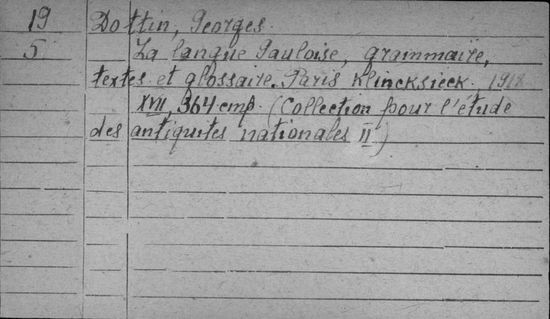 19 Dottin, Georges.
5 La langue Gauloise, grammaire,
textes et glossaire. Paris Klincksieck. 1918
XVII, 364 cmp. (Collection pour l'étude
des antiquites nationales II)